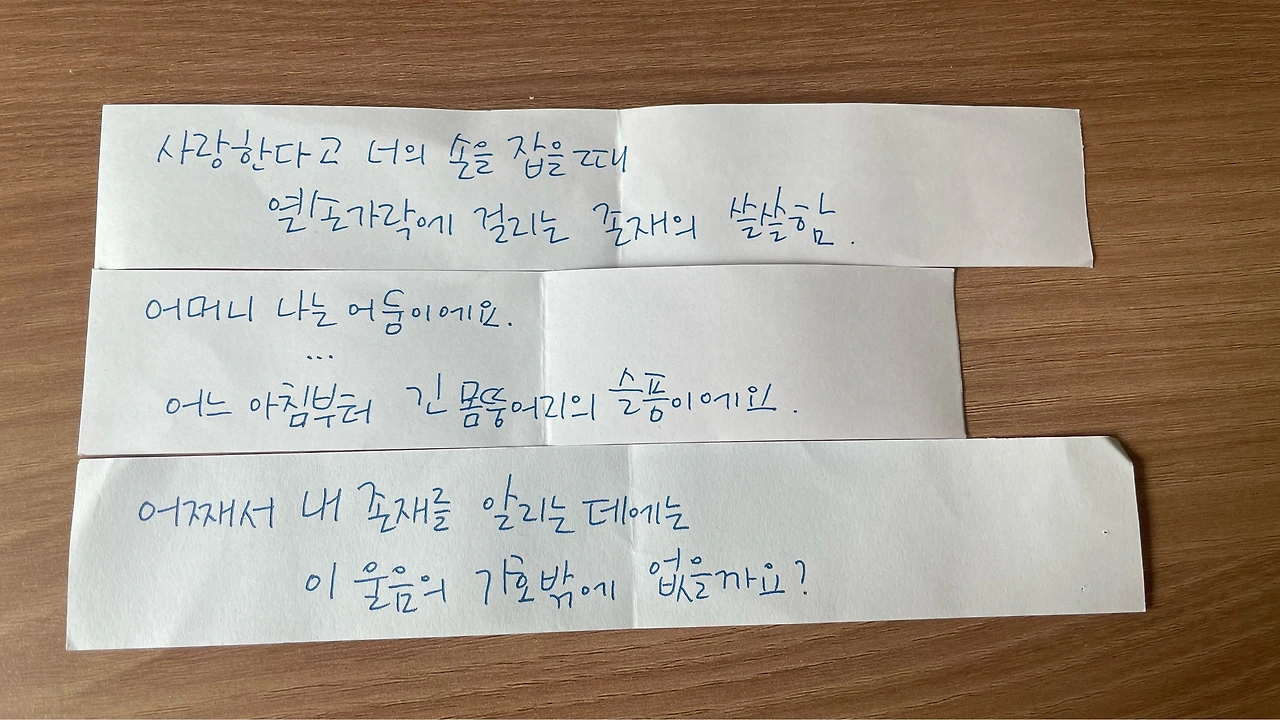 사랑한다고 너의 손을 잡을 때
열 손가락에 걸리는 존재의 쓸쓸함.
어머니 나는 어둠이에요.
...
어느 아침부터 긴 몸뚱어리의 슬픔이에요.
어째서 내 존재를 알리는 데에는
이 울음의 기호밖에 없을까요?